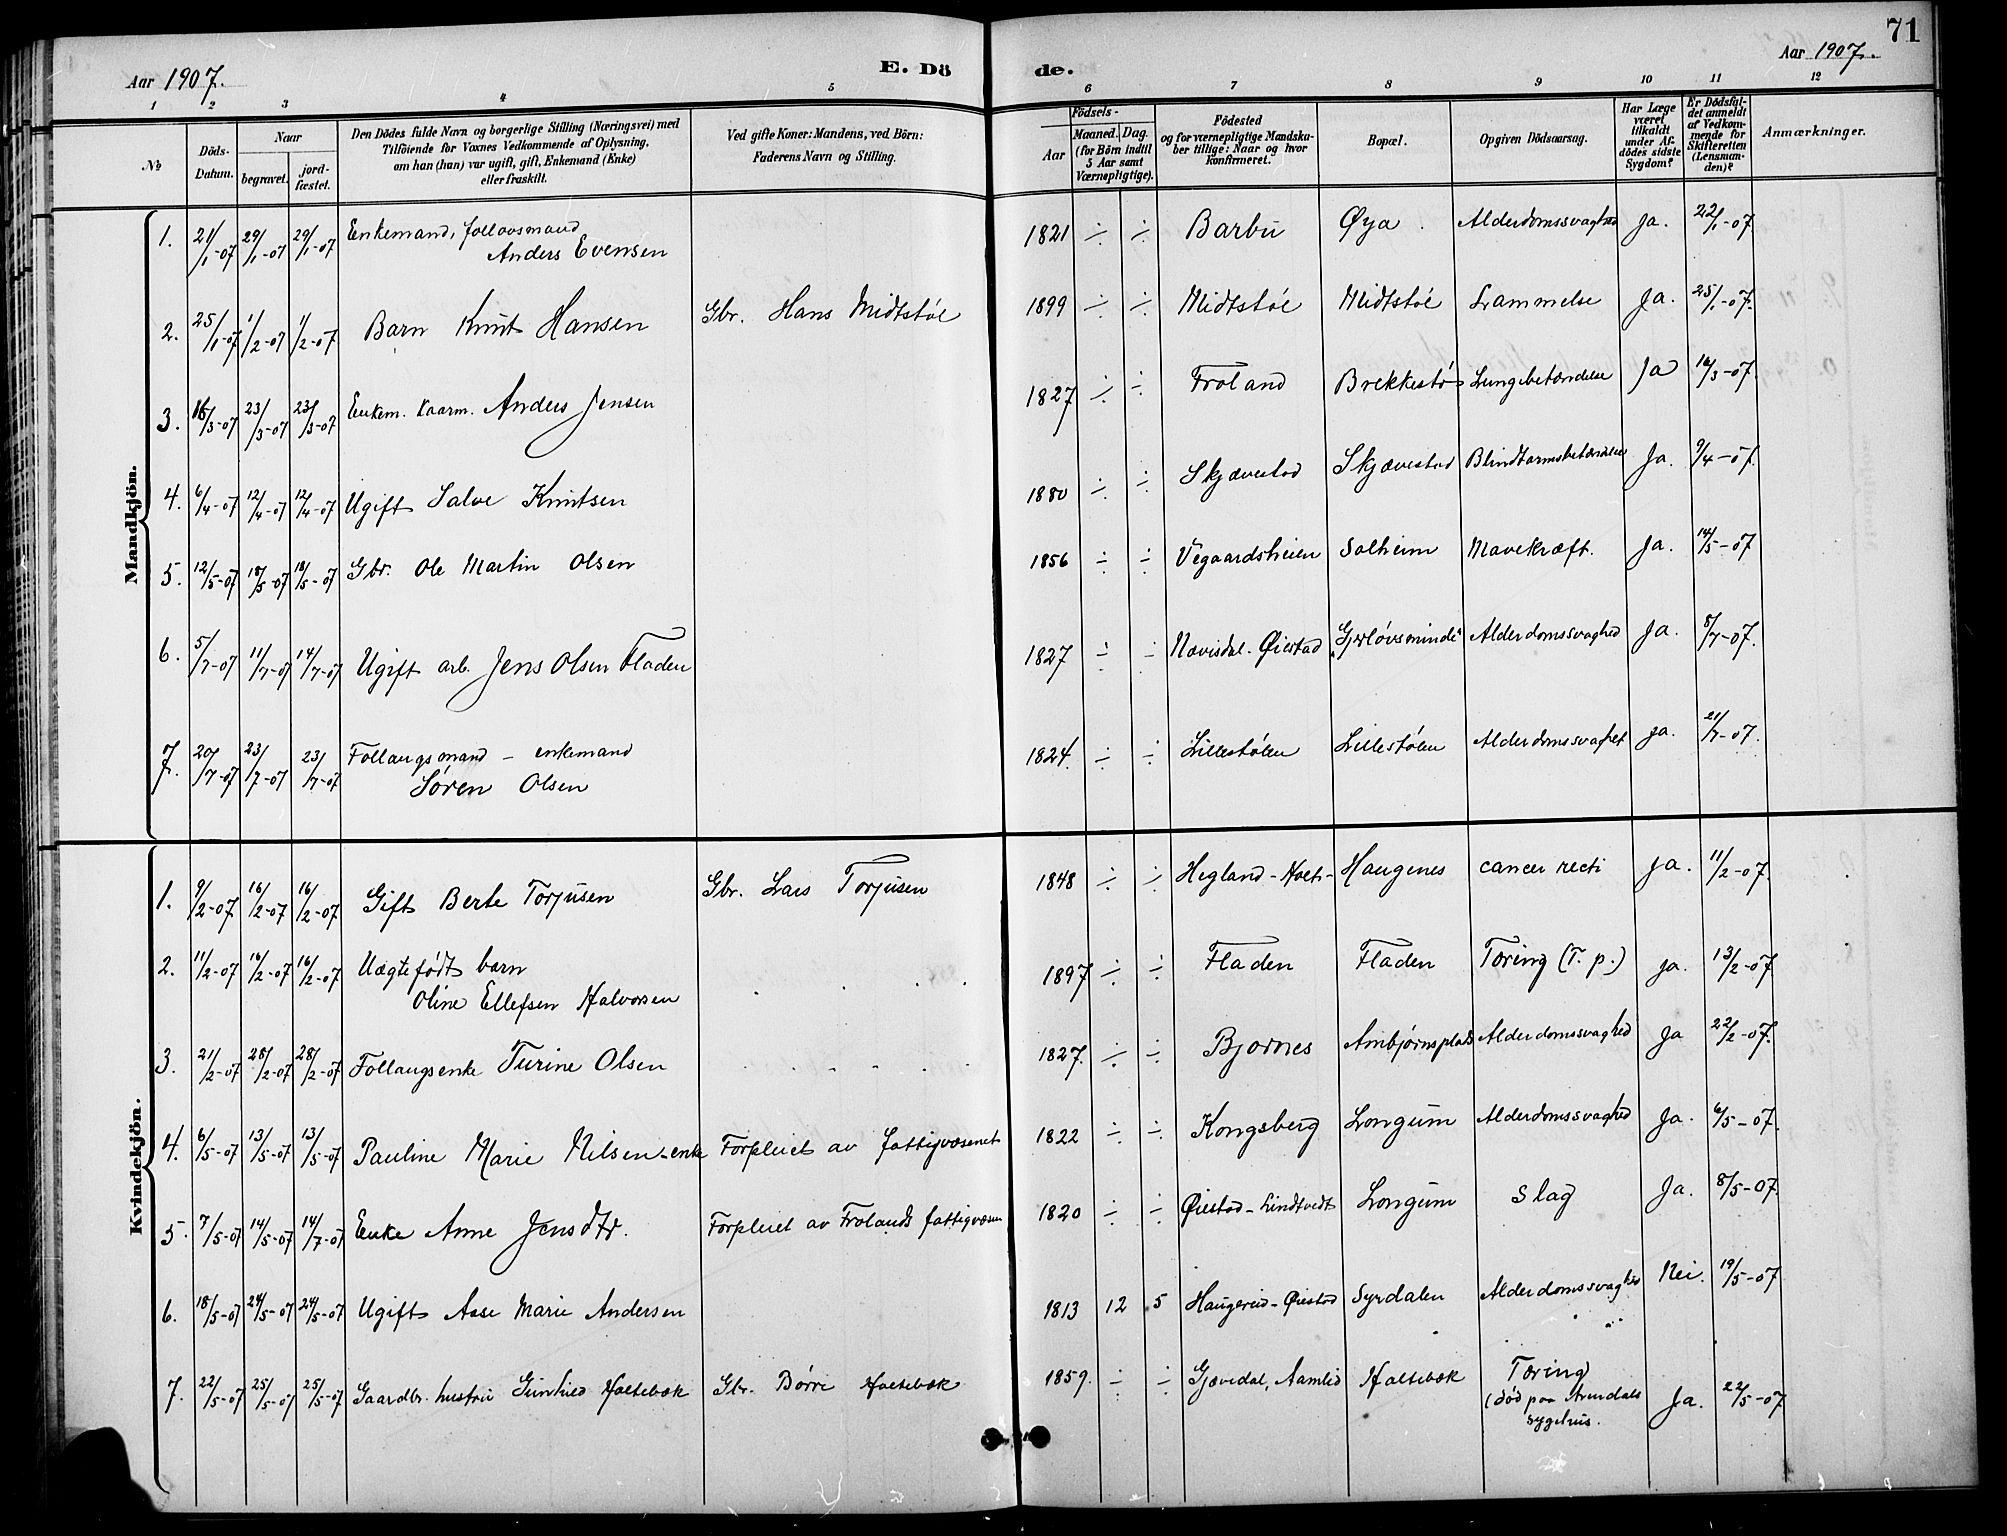 71
Aar 1907.
E. Dö
de.
Aar 1907.
1 2 3 4 5 6 7 8 9 10 11 12
№
Döds-Datum.
Naar
begravet.
jord-fæstet.
Den Dödes fulde Navn og borgerlige Stilling (Næringsvei) med
Tilföiende for Voxnes Vedkommende af Oplysning,
om han (hun) var ugift, gift, Enkemand (Enke)
eller fraskilt.
Ved gifte Koner: Mandens, ved Börn:
Faderens Navn og Stilling.
Födsels-
Aar
Maaned. Dag.
(for Börn indtil
5 Aar samt
Værnepligtige).
Födested
og for værnepligtige Mandska-
ber tillige: Naar og hvor
konfirmeret.
Bopæl.
Opgiven Dödsaarsag.
Har Læge
været
tilkaldt
under Af-
dödes sidste
Sygdom?
Er Dödsfal-
det anmeldt
af Vedkom-
mende for
Skifteretten
(Lensman-
den)?
Anmærkninger.
Mandkjön.
1. 21/1-07 29/1-07 29/1-07 Enkemand, follavsmand
Anders Evensen 1821 ÷ ÷ Barbu Øya Alderdomssvaghed Ja. 22/1-07
2. 25/1-07 1/2-07 1/2-07 Barn Knut Hansen Gbr. Hans Midtstøl 1899 ÷ ÷ Midtstøl Midtstøl Lammelse Ja. 25/1-07.
3. 16/3-07 23/3-07 23/3-07 Enkem. kaarm. Anders Jensen 1827 ÷ ÷ Froland Brekkestø Lungebetændelse Ja 16/3-07.
4. 6/4-07 12/4-07 12/4-07 Ugift Salve Knutsen 1880 ÷ ÷ Skjævestad Skjævestad Blindtarmsbetændelse Ja. 9/4-07.
5. 12/5-07 18/5-07 18/5-07 Gbr. Ole Martin Olsen 1856 ÷ ÷ Vegaardsheien Solheim Mavekræft. Ja. 14/5-07
6. 5/7-07 11/7-07 14/7-07 Ugift arb. Jens Olsen Fladen 1827 ÷ ÷ Nævisdal-Øiestad Alderdomssvaghed Ja. 8/7-07.
7. 20/7-07 23/7-07 23/7-07 Follaugsmand – enkemand
Søren Olsen 1824. ÷ ÷ Lillestølen Lillestølen ja. 21/7-07.
Kvindekjön.
1. 9/2-07 16/2-07 16/2-07 Gift Berte Torjusen Gbr. Lars Torjusen 1848 ÷ ÷ Hegland-Holt- Haugenes cancer recti Ja. 11/2-07.
2. 11/2-07 16/2-07 16/2-07 Uægtefødt barn
Oline Ellefsen Halvorsen 1897 ÷ ÷ Fladen Fladen Tæring (T. p.) ja. 13/2-07
3. 21/2-07 28/2-07 28/2-07 Follaugsenke Turine Olsen 1827. ÷ ÷ Bjornes Ambjørnsplads Alderdomssvaghed Ja 22/2-07.
4. 6/5-07 13/5-07 13/5-07 Pauline Marie Nilsen-enke Forpleiet av fattigvæsenet 1822 ÷ ÷ Kongsberg Longum Alderdomssvaghed Ja. 6/5-07.
5. 7/5-07 14/5-07 14/7-07 Enke Anne Jensdtr. Forpleiet av Frolands fattigvæsen 1820 ÷ ÷ Øiestad-Lindtvedt Longum Slag Ja. 8/5-07.
6. 18/5-07 24/5-07 24/5-07 Ugift Aase Marie Andersen 1813 12 5 Haugereid-Øiestad Syrdalen Alderdomssvaghed Nei. 19/5-07
7. 22/5-07 25/5-07 25/5-07 Gaardbr. hustru Gunhild Holtebæk Gbr. Børre Holtebæk 1859. ÷ ÷ Gjævedal, Aamlid Holtebæk Tæring
(død paa Arendals
sygehus. Ja. 22/5-07